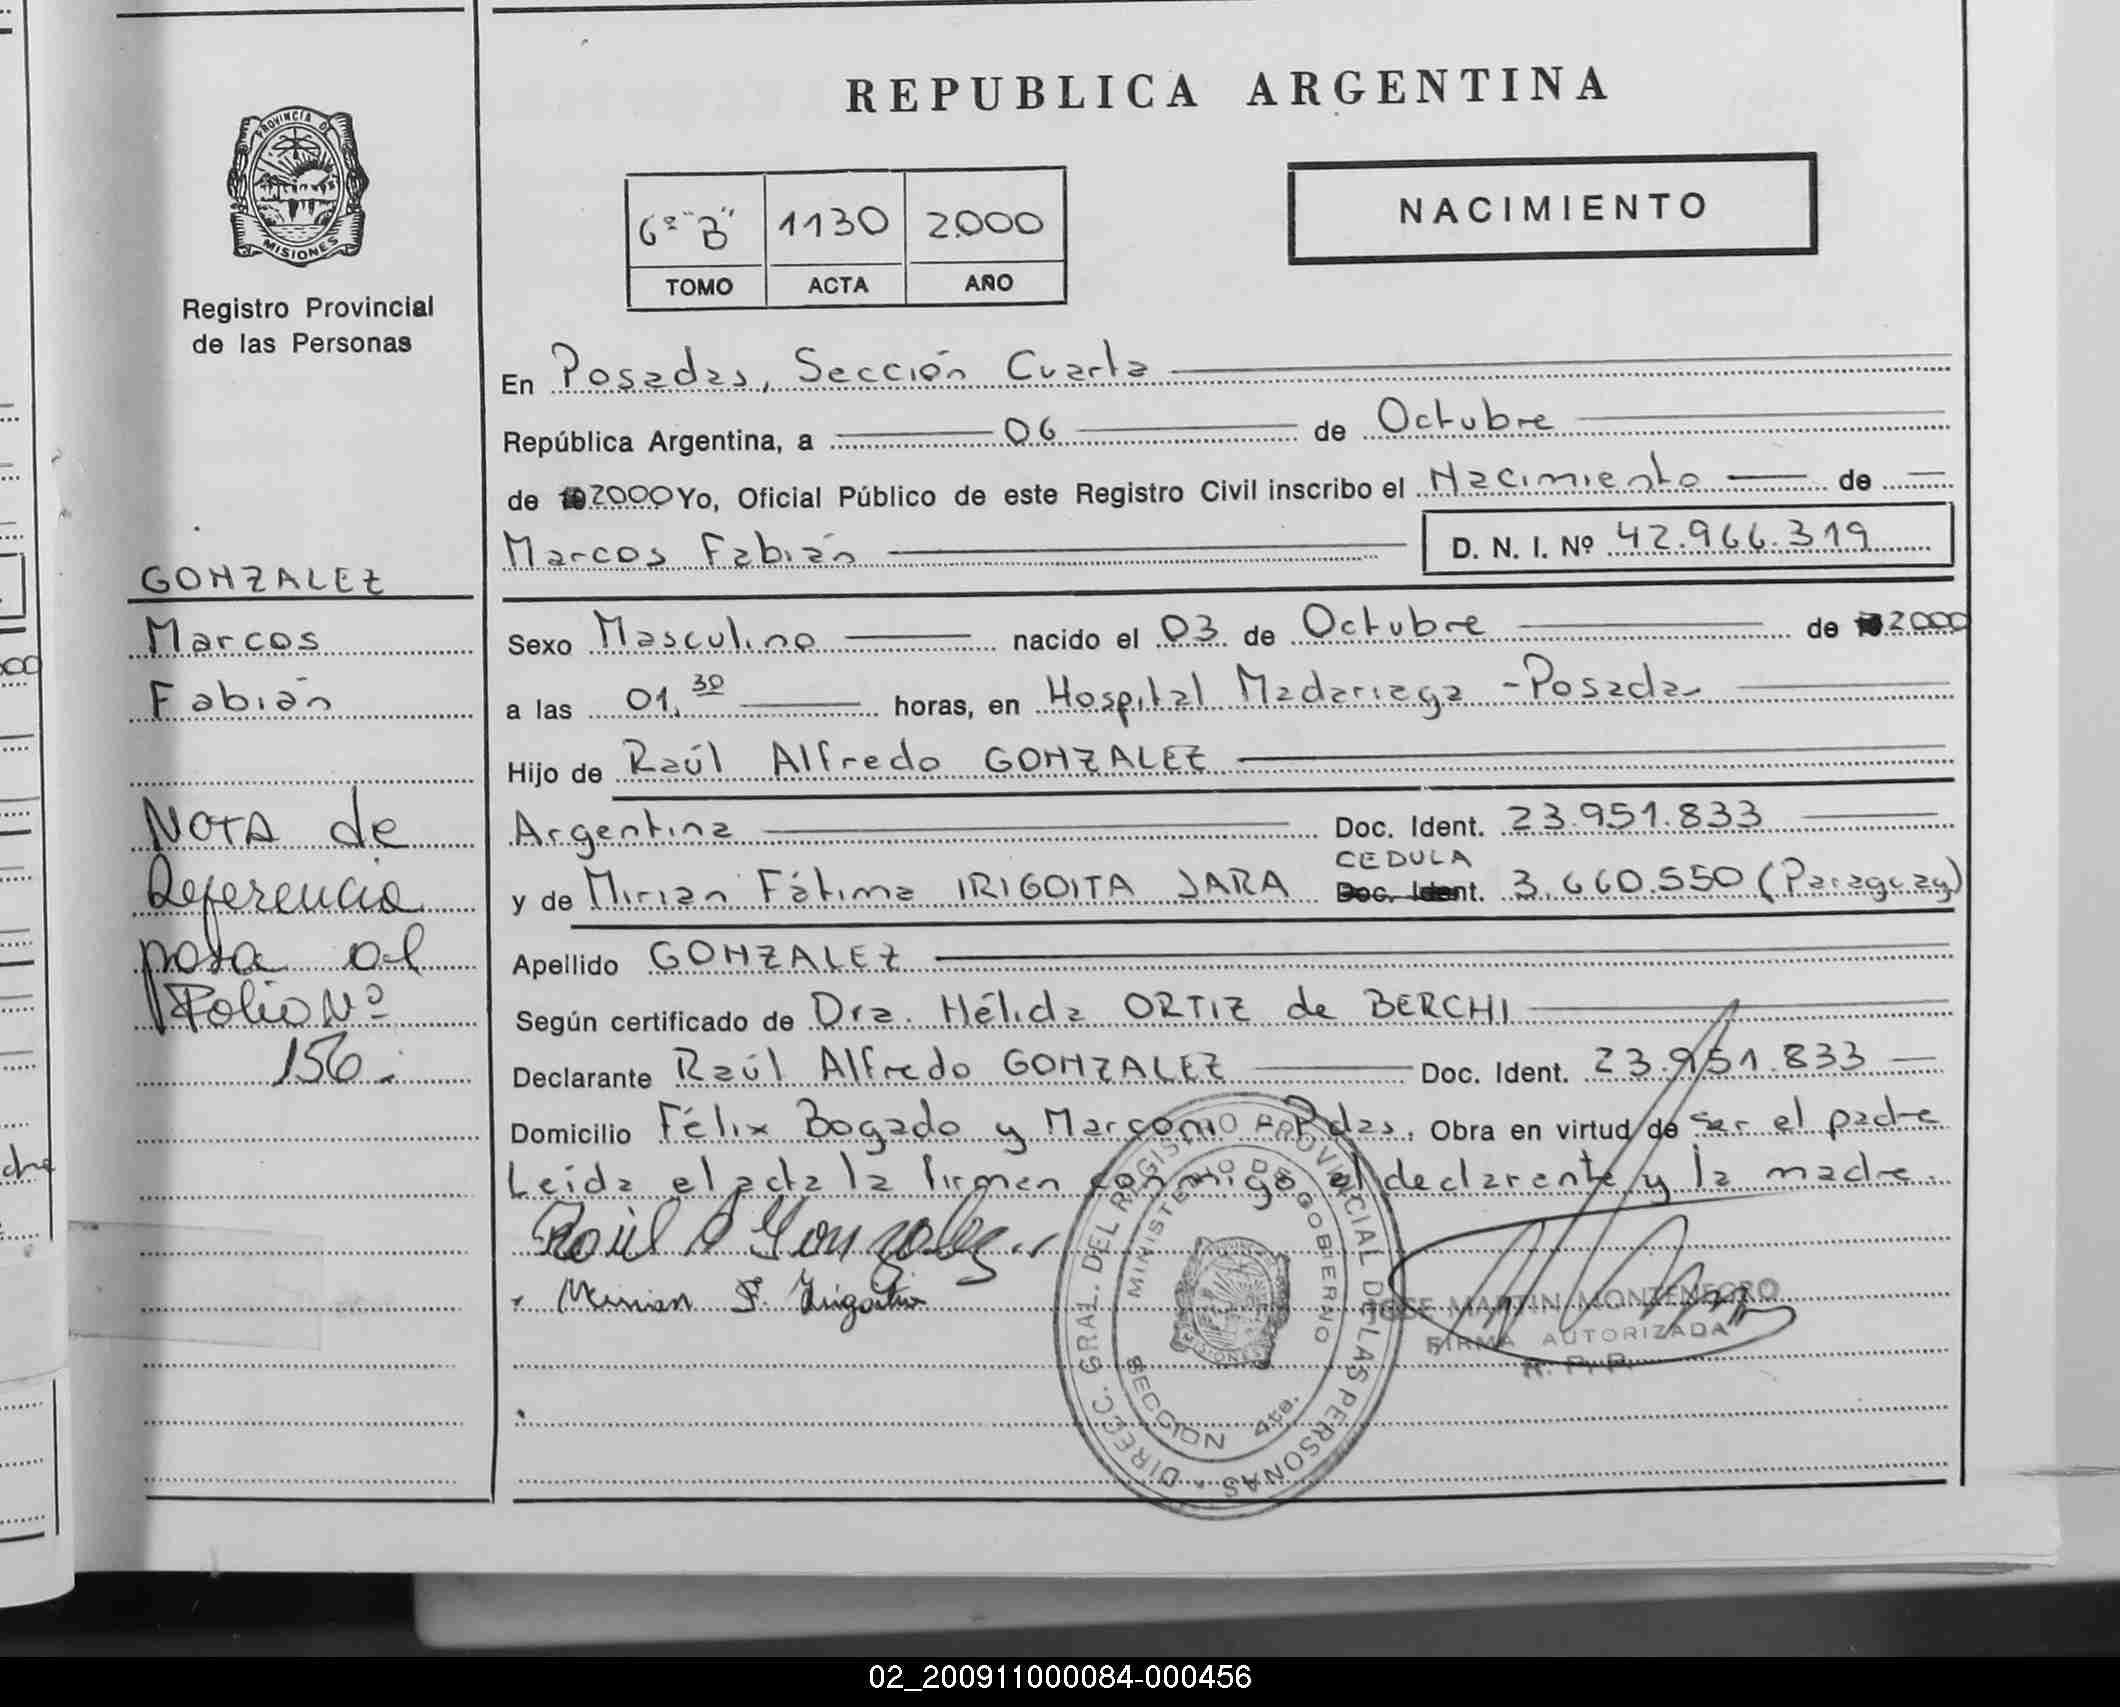 REPUBLICA ARGENTINA
PROVINCIA DE
MISIONES
Registro Provincial
de las Personas
6º "B" 1130 2.000
TOMO ACTA AÑO
NACIMIENTO
En Posadas, Sección Cuarta
República Argentina, a 06 de Octubre
de 2000 Yo, Oficial Público de este Registro Civil inscribo el Nacimiento de
Marcos Fabián D. N. I. Nº 42.966.319
GONZALEZ
Marcos
Fabián
NOTA de
Referencia
pasa al
Folio Nº
156.
Sexo Masculino nacido el 03 de Octubre de 2000
a las 01,30 horas, en Hospital Madariaga - Posadas
Hijo de Raúl Alfredo GONZALEZ
Argentina Doc. Ident. 23.951.833
CEDULA
y de Mirian Fátima IRIGOITA JARA Doc. Ident. 3.660.550 (Paraguay)
Apellido GONZALEZ
Según certificado de Dra. Hélida ORTIZ de BERCHI
Declarante Raúl Alfredo GONZALEZ Doc. Ident. 23.951.833
Domicilio Félix Bogado y Marconi Pdas. Obra en virtud de ser el padre
Leida el acta la firman conmigo el declarante y la madre.
Raúl A Gonzalez
Mirian F. Irigoitia
DIREC. GRAL. DEL REGISTRO PROVINCIAL DE LAS PERSONAS
MINISTERIO DE GOBIERNO
SECCION 4ta.
JOSE MARTIN MONTENEGRO
FIRMA AUTORIZADA
R. P. P.
02_200911000084-000456